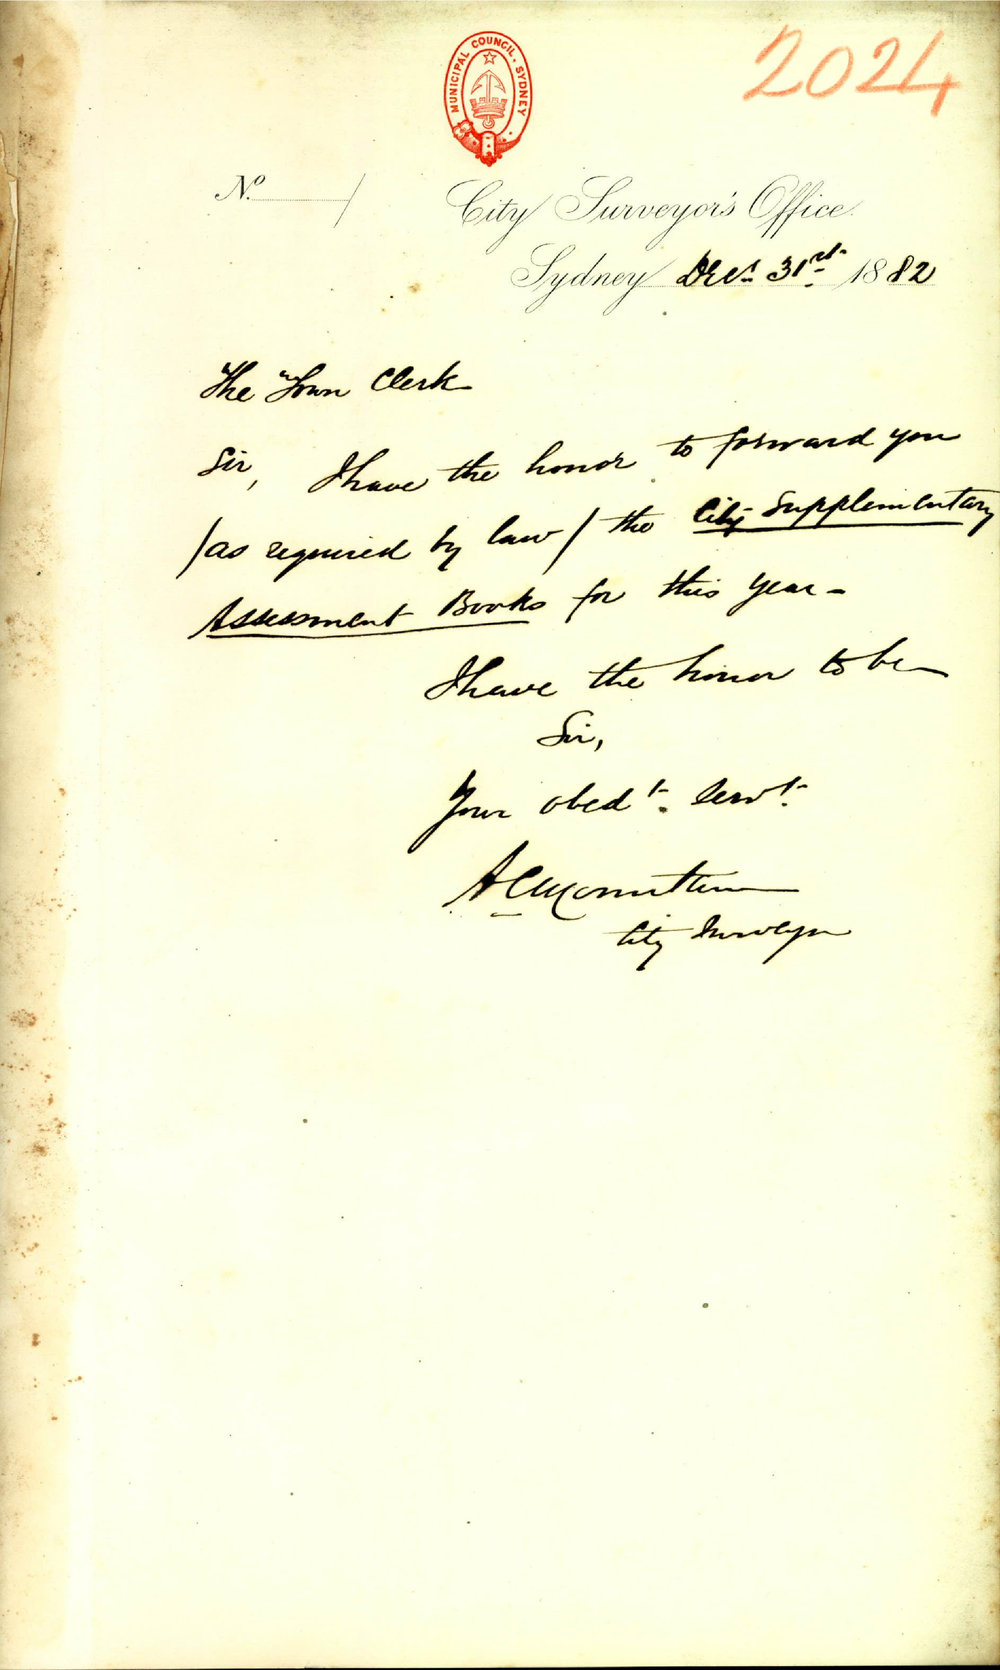 2024
MUNICIPAL COUNCIL. SYDNEY
No. /
City Surveyor's Office.
Sydney Decr 31st 1882
The Town Clerk
Sir, I have the honor to forward you
/as required by law/ the City Supplementary
Assessment Books for this year-
I have the honor to be
Sir,
Your obedt. Servt.
A C Mountain
City Surveyor